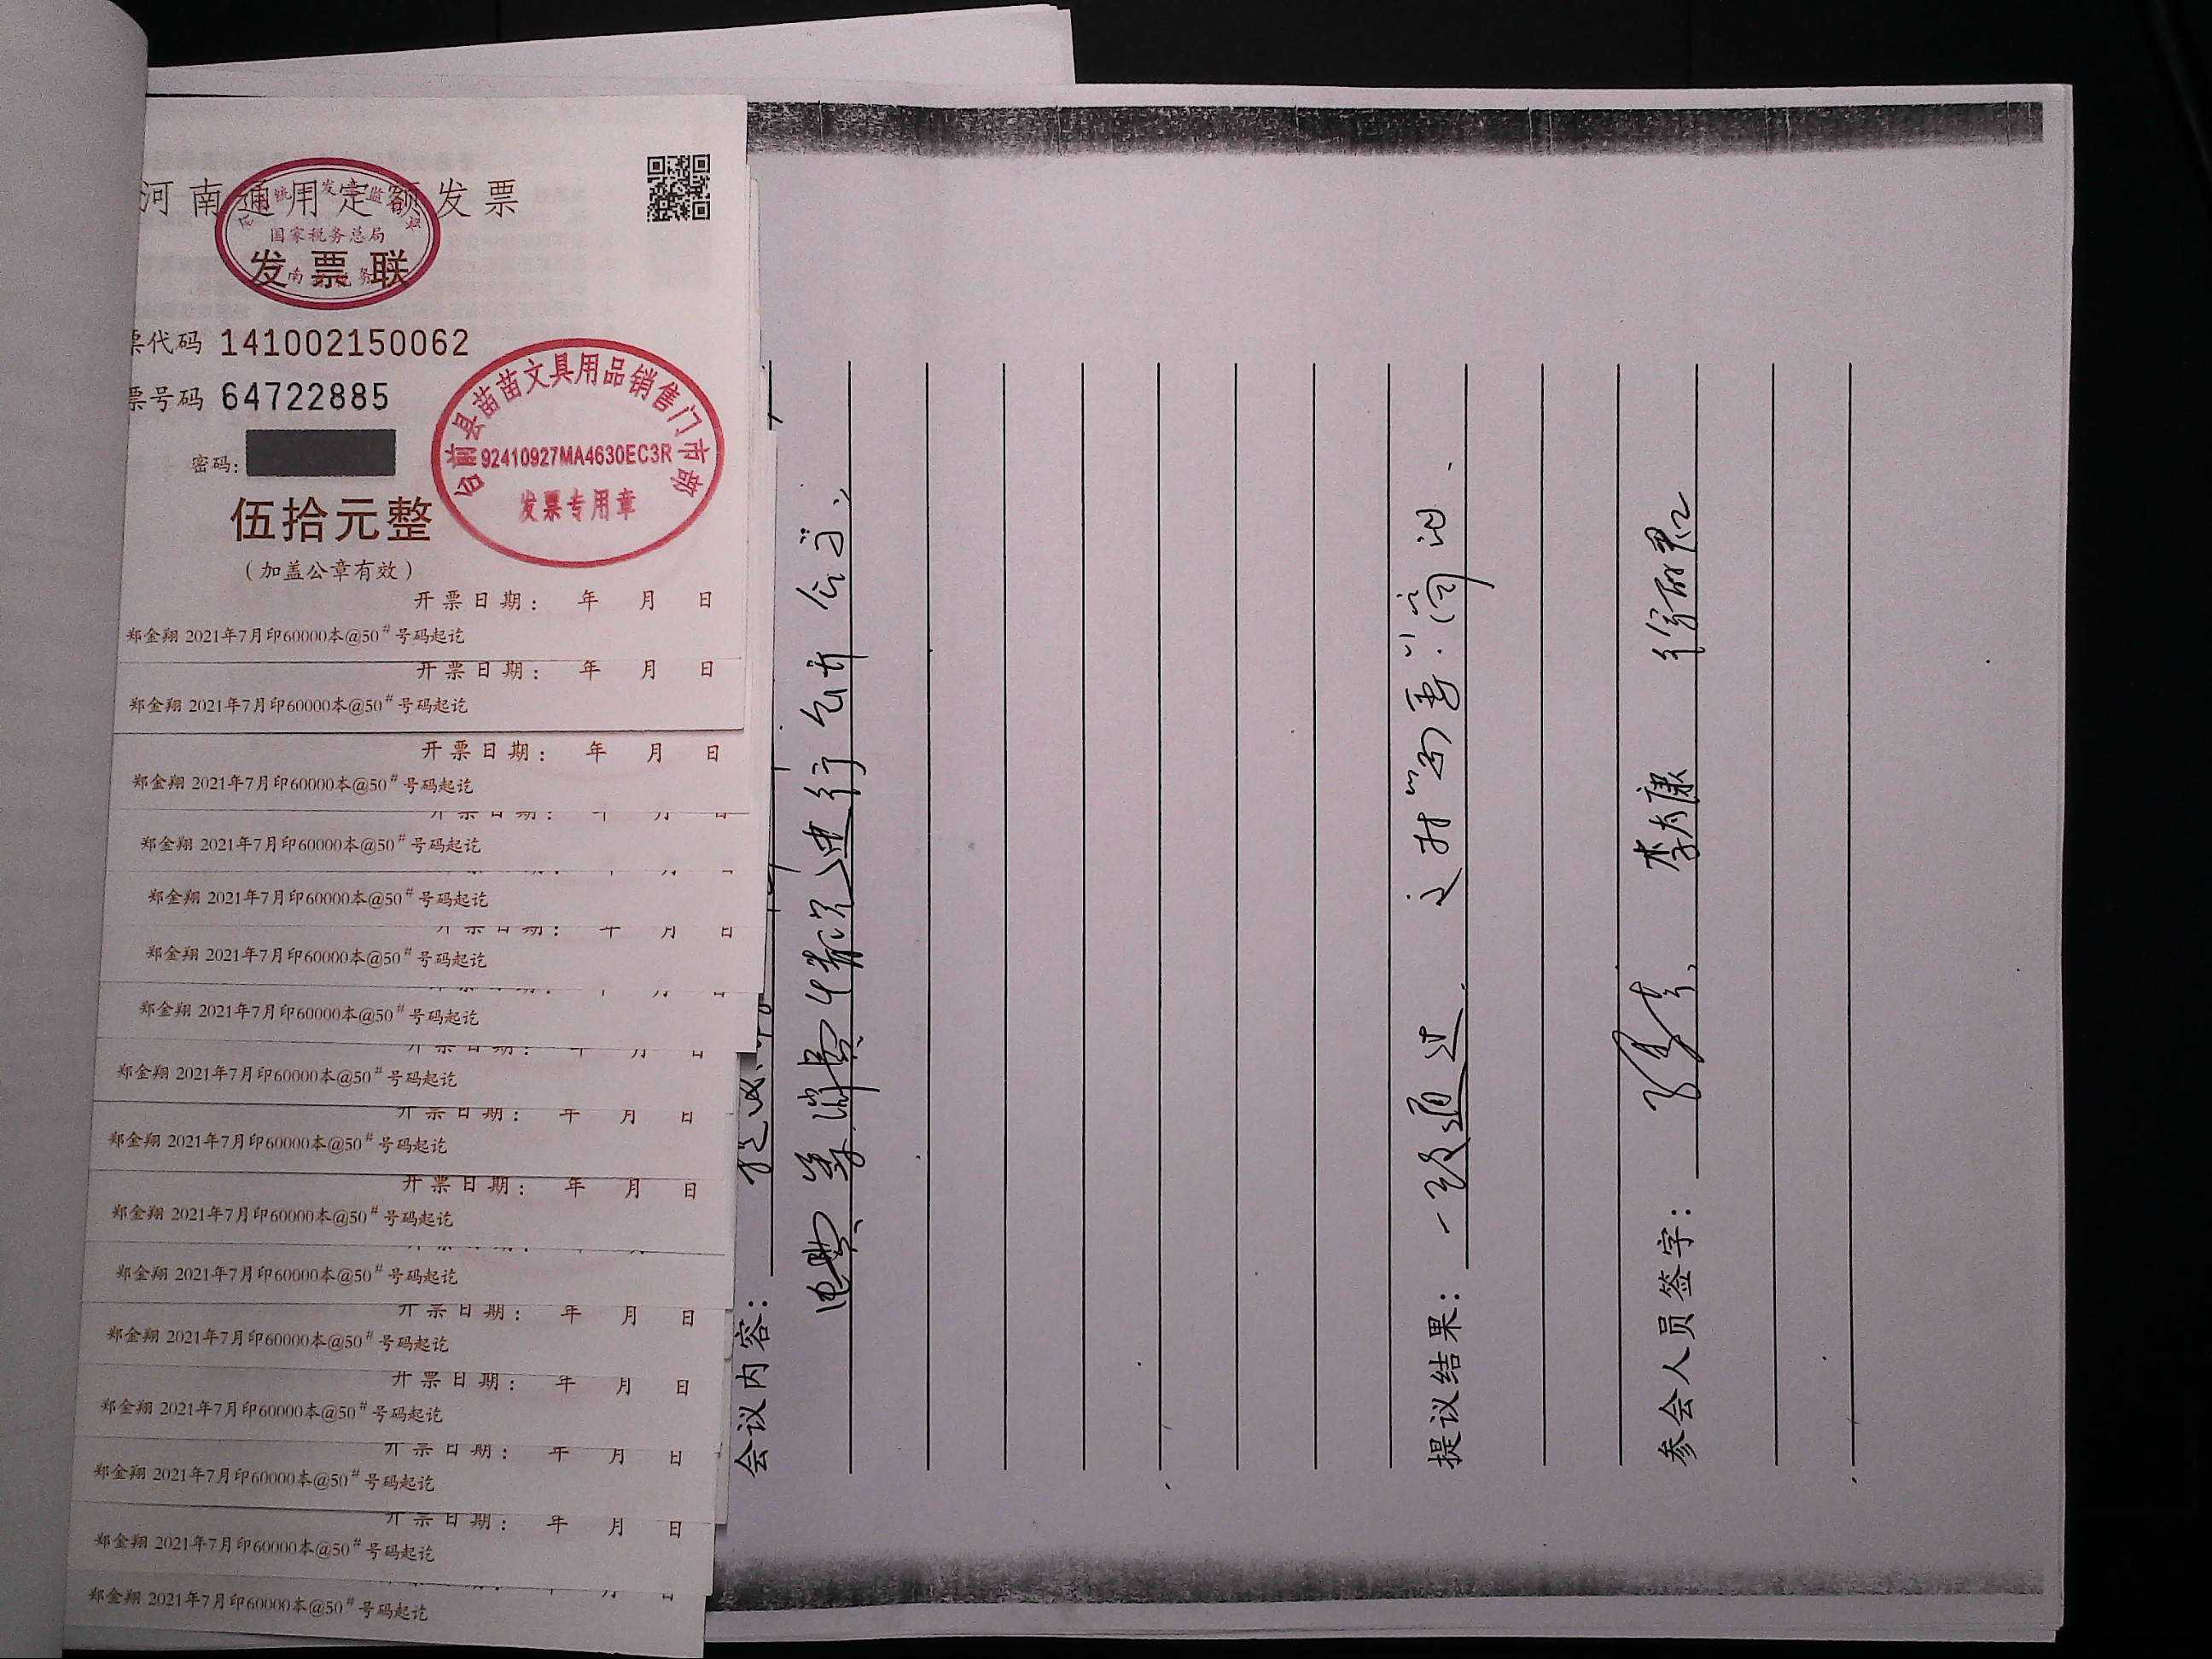 河南通用定额发票
国家税务总局
发票联
票代码 141002150062
票号码 64722885
密码:
伍拾元整
(加盖公章有效)
台前县苗苗文具用品销售门市部
92410927MA4630EC3R
发票专用章
开票日期: 年 月 日
郑金翔 2021年7月印60000本@50#号码起讫
开票日期: 年 月 日
郑金翔 2021年7月印60000本@50#号码起讫
开票日期: 年 月 日
郑金翔 2021年7月印60000本@50#号码起讫
开票日期: 年 月 日
郑金翔 2021年7月印60000本@50#号码起讫
郑金翔 2021年7月印60000本@50#号码起讫
开票日期: 年 月 日
郑金翔 2021年7月印60000本@50#号码起讫
郑金翔 2021年7月印60000本@50#号码起讫
开票日期: 年 月 日
郑金翔 2021年7月印60000本@50#号码起讫
开票日期: 年 月 日
郑金翔 2021年7月印60000本@50#号码起讫
开票日期: 年 月 日
郑金翔 2021年7月印60000本@50#号码起讫
郑金翔 2021年7月印60000本@50#号码起讫
开票日期: 年 月 日
郑金翔 2021年7月印60000本@50#号码起讫
开票日期: 年 月 日
郑金翔 2021年7月印60000本@50#号码起讫
开票日期: 年 月 日
郑金翔 2021年7月印60000本@50#号码起讫
开票日期: 年 月 日
郑金翔 2021年7月印60000本@50#号码起讫
郑金翔 2021年7月印60000本@50#号码起讫
会议内容:
电费等消费情况进行召开会议
提议结果: 一致通过
参会人员签字: 李有康